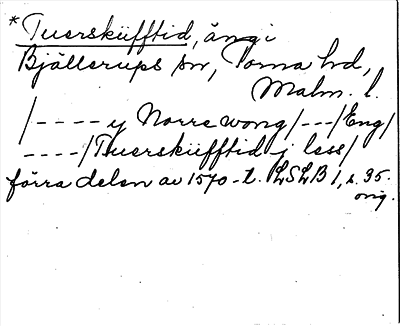 *Tuerskifftid, äng i
Bjällerups sn, Torna hd,
Malm. l.
/---- y Norre wong/---/Eng/
----/Tuerskifftid j less/
förra delen av 1570-t. LSLB 1, s. 35.
orig.